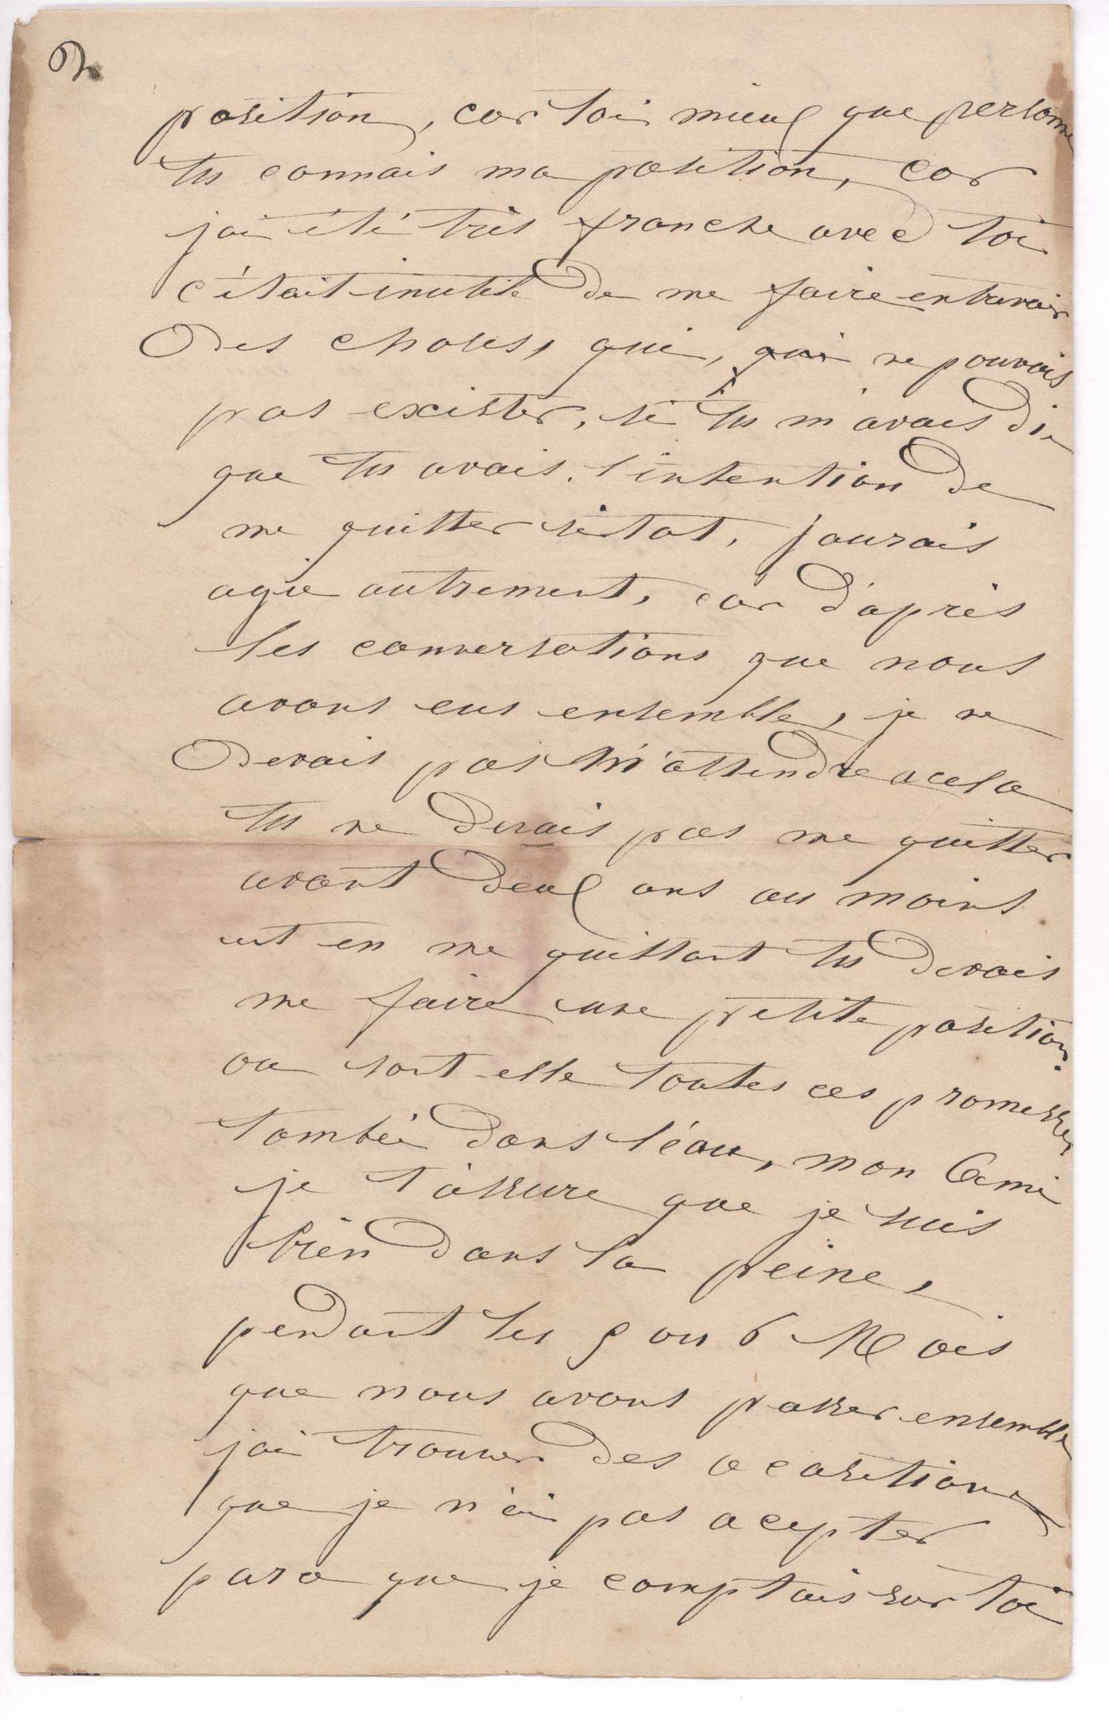 position, car toi mieux que personne
tu connais ma position, car
jai été très franche avec toi
c'était inutile de me faire entrevoir
des choses, qui, qui ne pouvais
pas exister, si tu m'avais di
que tu avais l'intention de
me quitter sitot, jaurais
agie autrement, car d'après
les conversations que nous
avons eus ensemble, je ne
devais pas m'attendre a cela
tu ne devais pas me quitter
avant deux ans au moins
et en me quittant tu devais
me faire une petite position.
ou sont elle toutes ces promesses
tombée dans l'éau, mon Ami
je t'assure que je suis
bien dans la peine,
pendant les 5 ou 6 Mois
que nous avons passer ensemble
jai trouver des ocasitions
que je n'ai pas acepter
parce que je comptais sur toi